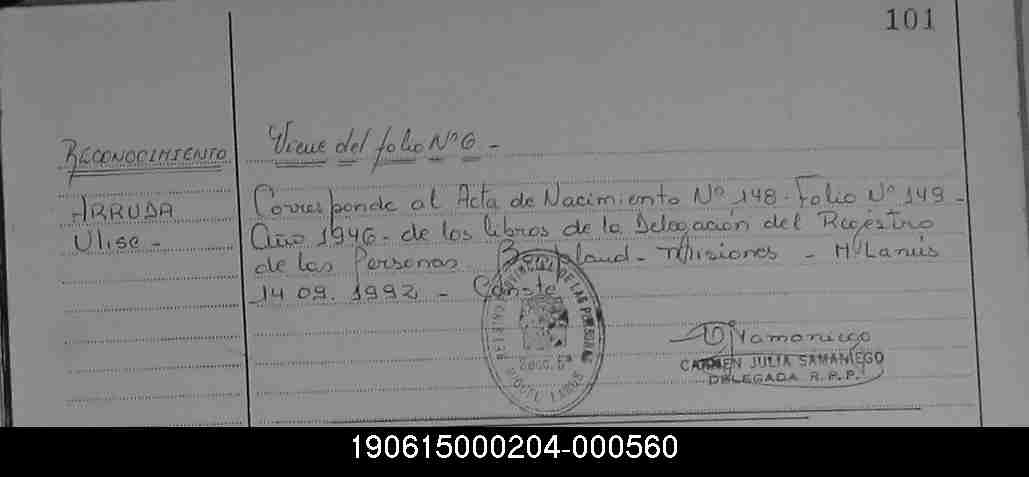 101
RECONOCIMIENTO
ARRUDA
Ulise -
Viene del folio Nº 6 -
Corresponde al Acta de Nacimiento Nº 148 - Folio Nº 149 -
Año 1946 - de los libros de la Delegación del Registro
de las Personas - Misiones - H. Lanús
14 09. 1992 - Conste
PROVINCIAL DE LAS PERSONAS
MIGUEL LANUS
Samaniego
CARMEN JULIA SAMANIEGO
DELEGADA R.P.P.
190615000204-000560